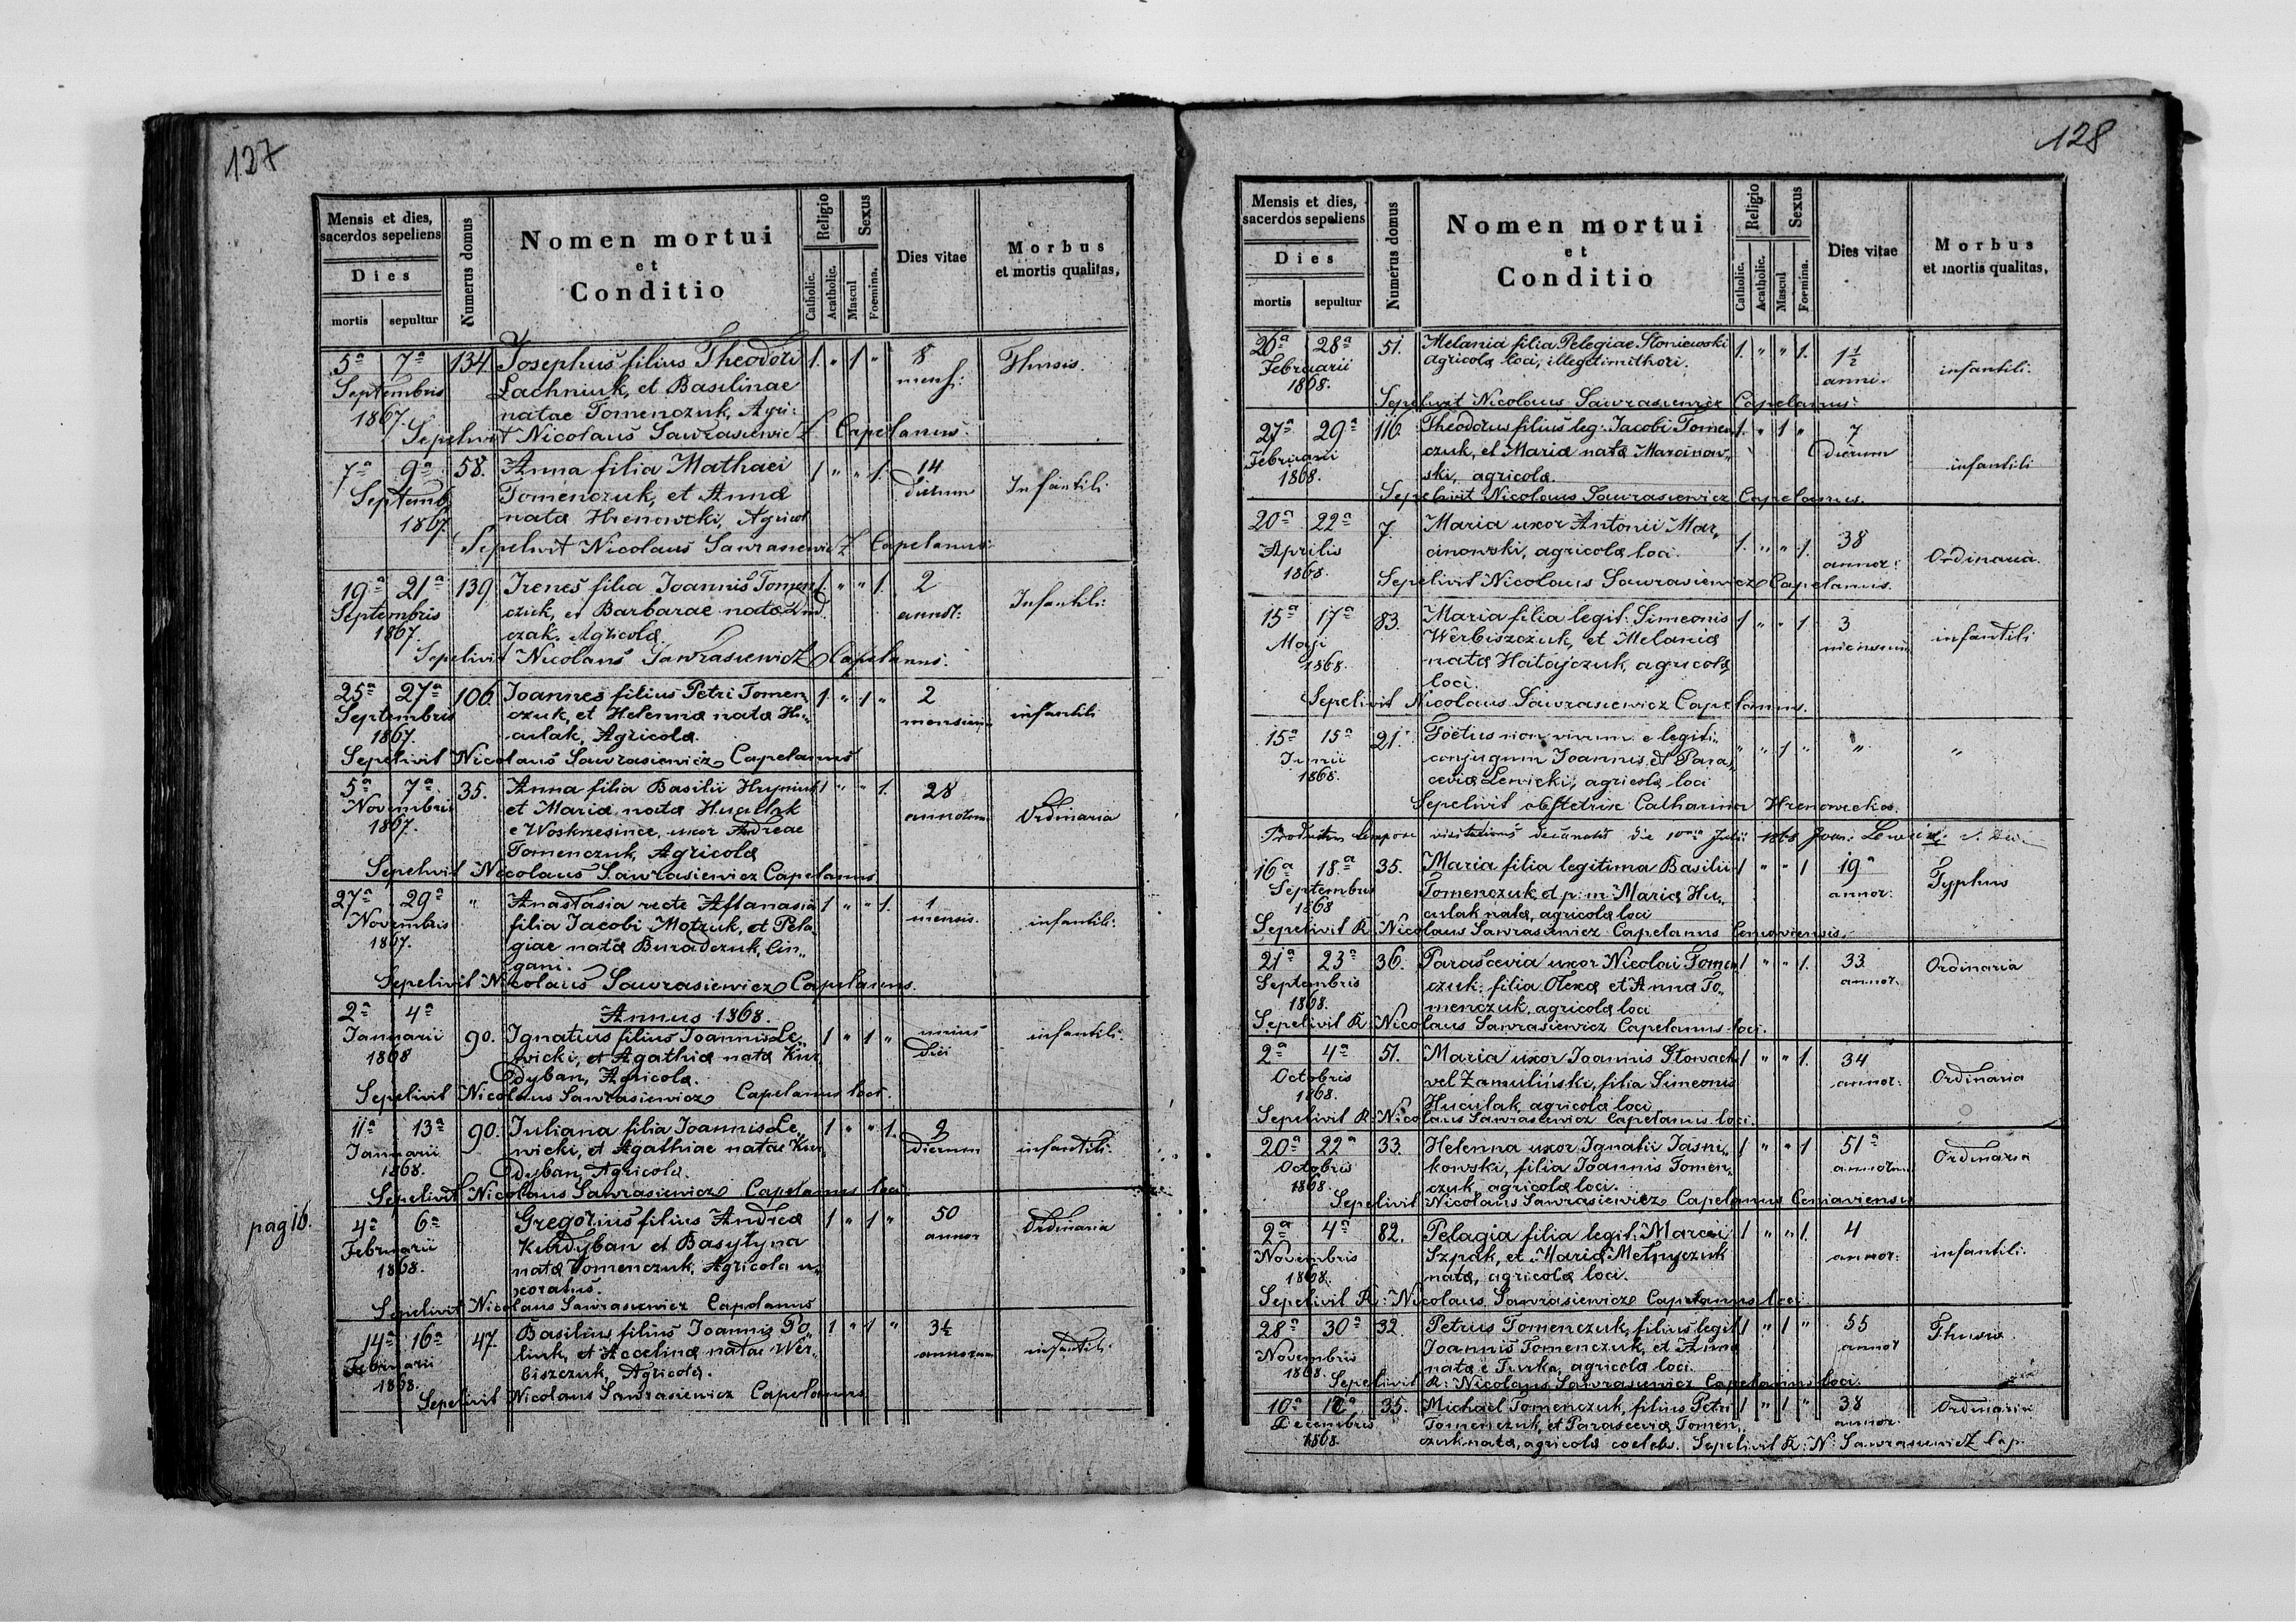 127
Mensis et dies, sacerdos sepeliens
Dies
mortis sepultur
Numerus domus
Nomen mortui et Conditio
Religio
Catholic. Acatholic.
Sexus
Mascul Foemina.
Dies vitae
Morbus et mortis qualitas,
5ª 7ª 134 Josephus filius Theodori 1. " 1 " 8 Thysis.
Septembris Lachniuk, et Basilinae mens:
1867. natae Tomenczuk, Agri:
Sepelivit Nicolaus Sawrasiewicz Capelanus.
7ª 9ª 58. Anna filia Mathaei 1 " " 1. 14 Infantili
Septemb Tomenczuk, et Anna dierum
1867 nata Hrenowcki, Agricol
Sepelivit Nicolaus Sawrasiewicz Capelanus
19ª 21ª 139 Irenes filia Joannis Tomen 1 " " 1. 2 Infantili:
Septembris czuk, et Barbarae nata
1867. czak. Agricola.
Sepelivit Nicolaus Sawrasiewicz Capelanus.
25ª 27ª 106. Joannes filius Petri Tomen 1. " 1 " 2 infantili
Septembris czuk, et Helenna nata Hu„ mensium
1867. culak, Agricola.
Sepelivit Nicolaus Sawrasiewicz Capelanus
5ª 7ª 35. Anna filia Basilii 1 " " 1. 28 Ordinaria
Novembris et Maria nata annorum
1867. e Woskrzesince, uxor Andreae
Tomenczuk, Agricola
Sepelivit Nicolaus Sawrasiewicz Capelanus.
27ª 29ª " Anastasia recte Aftanasia 1 " " 1. 1 infantili:
Novembris filia Jacobi Motzuk, et Pela„ mensis.
1867. giae nata Buradczuk, Cin„
gani.
Sepelivit Nicolaus Sawrasiewicz Capelanus.
Annus 1868.
2ª 4ª
Januarii 90. Ignatius filius Joannis Le„ 1 " 1 " unius infantili:
1868 wicki, et Agathia nata Kur„ diei
dyban, Agricola.
Sepelivit Nicolaus Sawrasiewicz Capelanus loci.
11ª 13ª 90. Juliana filia Joannis Le„ 1 " " 1. 9 infantili.
Januarii wicki, et Agathiae natae Kur„ dierum
1868. dyban, Agricola.
Sepelivit Nicolaus Sawrasiewicz Capelanus loci
pag 16.
4ª 6ª Gregorius filius Andrea 1 " 1 " 50 Ordinaria
Februarii Kurdyban et Basylyna annor
1868. nata Tomenczuk, Agricola u„
xoratus.
Sepelivit Nicolaus Sawrasiewicz Capelanus
14ª 16ª 47. Basilius filius Joannis Po„ 1 " 1 " 3½ infantili:
Februarii liuk, et Accelina natae Wer„ annorum
1868. biszczuk, Agricola.
Sepelivit Nicolaus Sawrasiewicz Capelanus
128
Mensis et dies, sacerdos sepeliens
Dies
mortis sepultur
Numerus domus
Nomen mortui et Conditio
Religio
Catholic. Acatholic.
Sexus
Mascul Foemina.
Dies vitae
Morbus et mortis qualitas,
26ª 28ª 51. Melania filia Pelegiae Sloniewski 1. " " 1. 1½ infantili.
Februarii agricola loci, illegitimithori. anni.
1868.
Sepelivit Nicolaus Sawrasiewicz Capelanus.
27ª 29ª 116. Theodorus filius leg: Jacobi Tomen 1. " 1 " 7 infantili
Februarii czuk, et Maria nata Marcinow„ dierum
1868. ski, agricola.
Sepelivit Nicolaus Sawrasiewicz Capelanus.
20ª 22ª 7. Maria uxor Antonii Mar„ 1. " " 1. 38 Ordinaria.
Aprilis cinowski, agricola loci. annor:
1868.
Sepelivit Nicolaus Sawrasiewicz Capelanus.
15ª 17ª 83. Maria filia legit: Simeonis 1 " " 1. 3 infantili
Maji Werbiszczuk, et Melania mensium
1868. nata Hatajczuk, agricola
loci.
Sepelivit Nicolaus Sawrasiewicz Capelanus.
15ª 15ª 21. Foetus non vivum e legiti„ " " 1 " " "
Junii conjugum Joannis et Para„
1868. cevia Lewicki, agricola loci
Sepelivit obstetrix Catharina Hrenowecka.
Productum tempore visitationis decanatus die Julii 1868 Joan: Lewicki
16ª 18ª 35. Maria filia legitima Basilii 1 " " 1 19ª Typhus
Septembris Tomenczuk et p: m: Maria Hu„ annor:
1868 culak nata, agricola loci
Sepelivit R: Nicolaus Sawrasiewicz Capelanus Ceniaviensis.
21ª 23ª 36. Parascevia uxor Nicolai Tomen 1 " " 1. 33 Ordinaria
Septembris czuk, filia Olexa et Anna To„ annor.
1868. menczuk, agricola loci
Sepelivit R: Nicolaus Sawrasiewicz Capelanus loci.
2ª 4ª 51. Maria uxor Joannis Slowacki 1 " " 1. 34 Ordinaria
Octobris vel Zamuliński, filia Simeonis annor:
1868. Huculak agricola loci
Sepelivit R: Nicolaus Sawrasiewicz Capelanus loci.
20ª 22ª 33. Helenna uxor Ignatii Jasni„ 1 " " 1 51ª Ordinaria
Octobris kowski, filia Joannis Tomen„ annorum
1868. czuk, agricola loci.
Sepelivit Nicolaus Sawrasiewicz Capelanus Ceniaviensis
2ª 4ª 82. Pelagia filia legit: Marcii 1 " " 1. 4 infantili.
Novembris Szpak, et Maria Melnyczuk annor:
1868. nata, agricola loci.
Sepelivit R: Nicolaus Sawrasiewicz Capelanus loci
28ª 30ª 32. Petrus Tomenczuk, filius legit 1 " 1 " 55 Thysis
Novembris Joannis Tomenczuk, et Anna annor
1868. nata e Turka, agricola loci.
Sepelivit R: Nicolaus Sawrasiewicz Capelanus loci.
10ª 12ª 35. Michael Tomenczuk, filius Petri 1 " 1 " 38 Ordinaria
Decembris Tomenczuk, et Parascevia Tomen„ annor.
1868. czuk nata, agricola coelebs. Sepelivit R: N: Sawrasiewicz Cap.